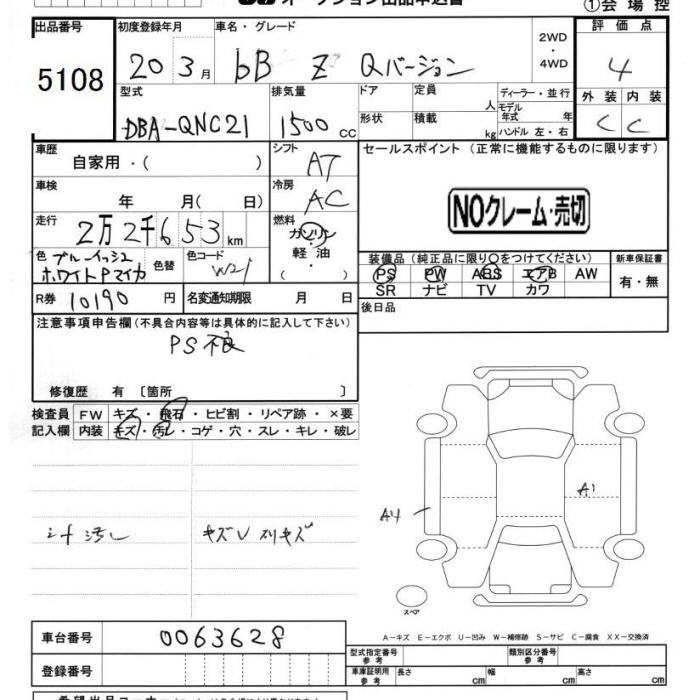 オークション出品申込書
①会場控
出品番号 初度登録年月 車名・グレード 2WD・4WD 評価点
5108 20 3月 bB Z Qバージョン 4
型式 排気量 ドア 定員 人 ディーラー・並行 外装 内装
DBA-QNC21 1500cc 形状 積載 kg モデル年式 年 ハンドル 左・右 C C
車歴 自家用・( ) シフト AT セールスポイント (正常に機能するものに限ります)
車検 年 月( 日) 冷房 AC
NOクレーム・売切
走行 2万2千653km 燃料 ガソリン・軽油・
色 ブルーイッシュホワイトPマイカ 色替 色コード W21
装備品(純正品に限り○をつけてください) 新車保証書
PS PW ABS エアB AW 有・無
SR ナビ TV カワ
R券 10190円 名変通知期限 月 日 後日品
注意事項申告欄(不具合内容等は具体的に記入して下さい)
PS不良
修復歴 有 〔箇所 〕
検査員 FW キズ・飛石・ヒビ割・リペア跡・×要
記入欄 内装 キズ・汚レ・コゲ・穴・スレ・キレ・破レ
A1
A4
シート汚レ キズU スリキズ
スペア
車台番号 0063628
A-キズ E-エクボ U-凹み W-補修跡 S-サビ C-腐食 XX-交換済
登録番号
型式指定番号 参考 類別区分番号 参考
車庫証明用 参考 長さ cm 幅 cm 高さ cm